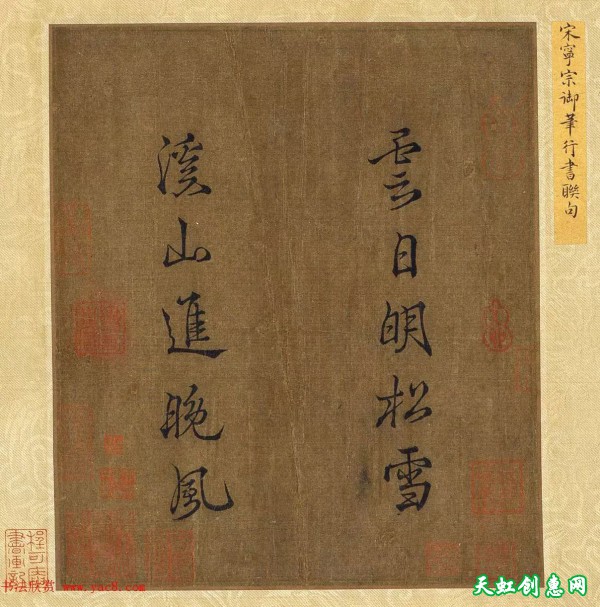 宋寧宗御筆行書聯句
雲日明松雪
溪山進晚風
程可菴書画記
书法欣赏 www.yac8.com
天虹创惠网